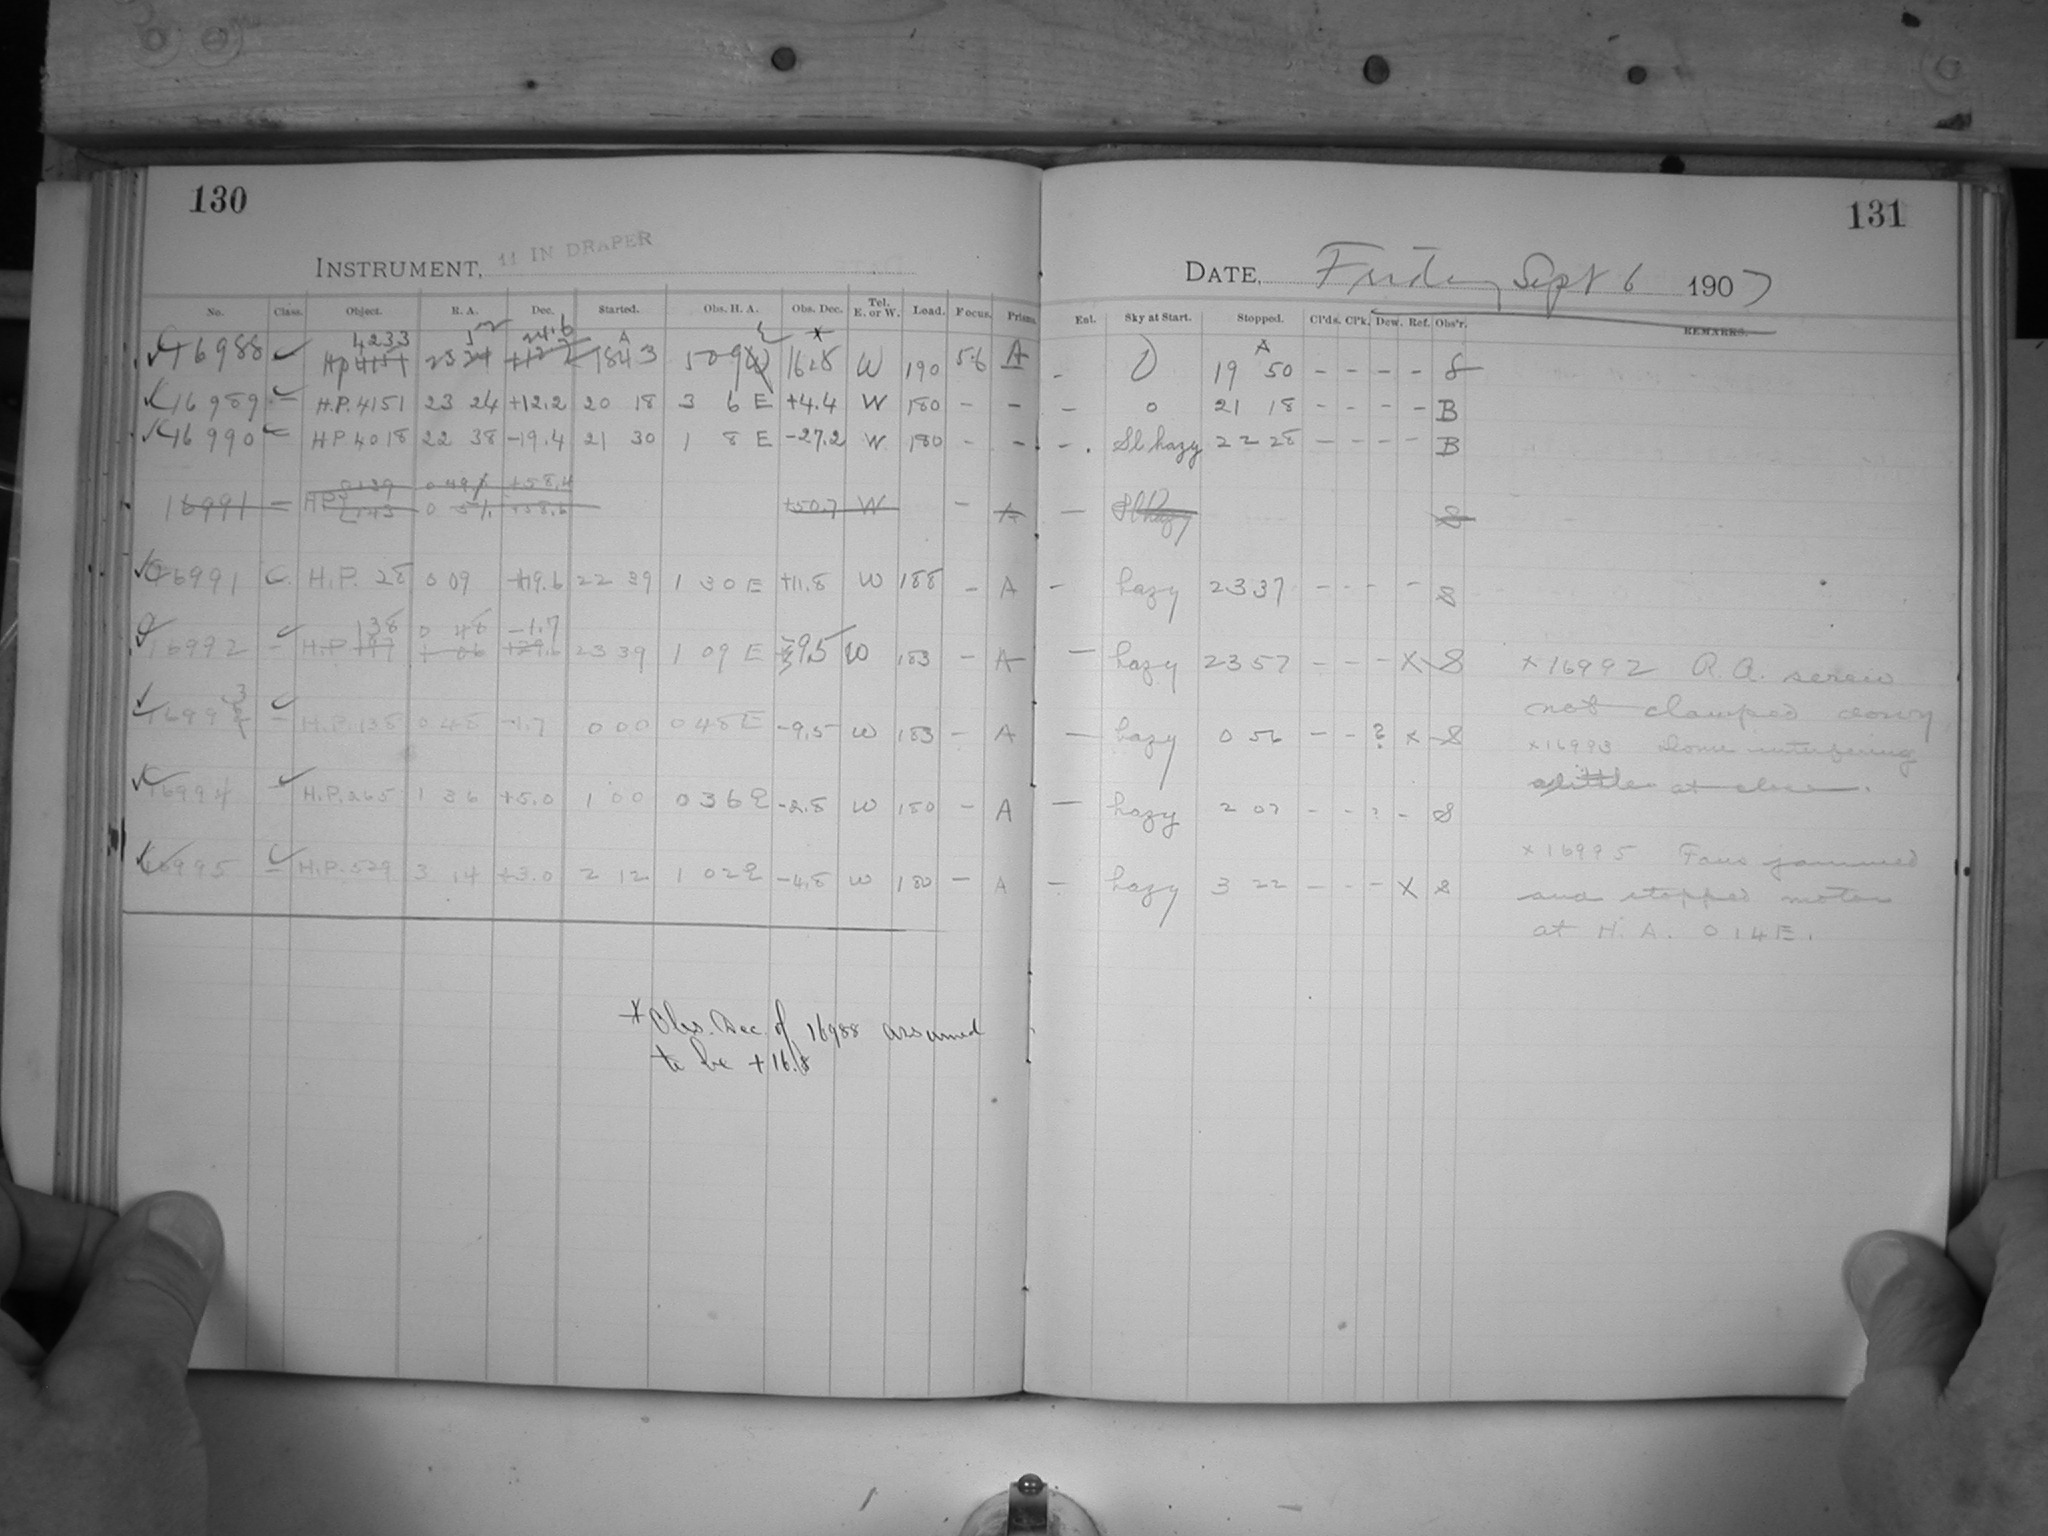 130
131
INSTRUMENT, 11 IN DRAPER
DATE, Friday Sept 6 1907
No. Class. Object. R. A. Dec. Started. Obs. H. A. Obs. Dec. Tel. E. or W. Load. Focus. Prisms. Ent. Sky at Start. Stopped. Cl'ds. Cl'k. Dew. Ref. Obs'r. REMARKS.
4233 24.6 A * A
C16988 HP 4151 23 24 +12.2 18 43 5 09 16.8 W 190 5.6 A - 0 19 50 - - - - S
C16989 - H.P. 4151 23 24 +12.2 20 18 3 6 E +4.4 W 180 - - - 0 21 18 - - - - B
C16990 - HP 4018 22 38 -19.4 21 30 1 8 E -27.2 W 180 - - - Sl hazy 22 28 - - - - B
0139 0 49.1 +58.4
16991 - H.P. 0 51 +58.6 +50.7 W - A - Sl hazy S
C16991 C. H.P. 28 0 09 +19.6 22 39 1 30 E +11.8 W 188 - A - hazy 23 37 - - - - S
138 0 48 -1.7
C16992 - H.P. 197 1 06 +29.6 23 39 1 09 E -9.5 W 183 - A - hazy 23 57 - - - X S
×16992 R.A. screw
not clamped down
16993 - H.P. 138 0 48 -1.7 0 00 0 48 E -9.5 W 183 - A - hazy 0 56 - - ? × S
×16993 Dome interfering
a little at close.
C16994 - H.P. 265 1 36 +5.0 1 00 0 36 E -2.8 W 180 - A - hazy 2 07 - - ? - S
C16995 - H.P. 529 3 14 +3.0 2 12 1 02 E -4.8 W 180 - A - hazy 3 22 - - - X S
×16995 Fans jammed
and stopped motor
at H. A. 0 14 E.
* Obs. Dec. of 16988 assumed
to be +16.8